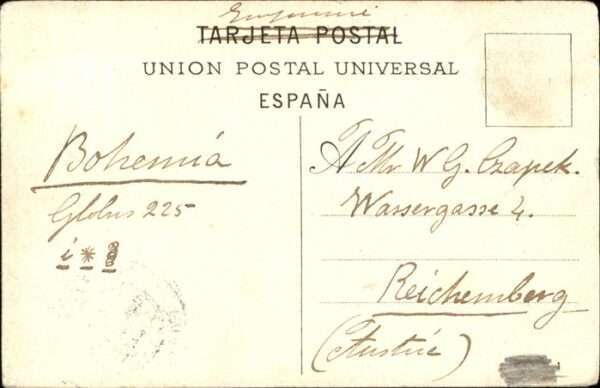 TARJETA POSTAL
UNION POSTAL UNIVERSAL
ESPAÑA
Bohemia
Globus 225
A Mr W G. Czapek.
Wassergasse 4.
Reichemberg
(Austria)